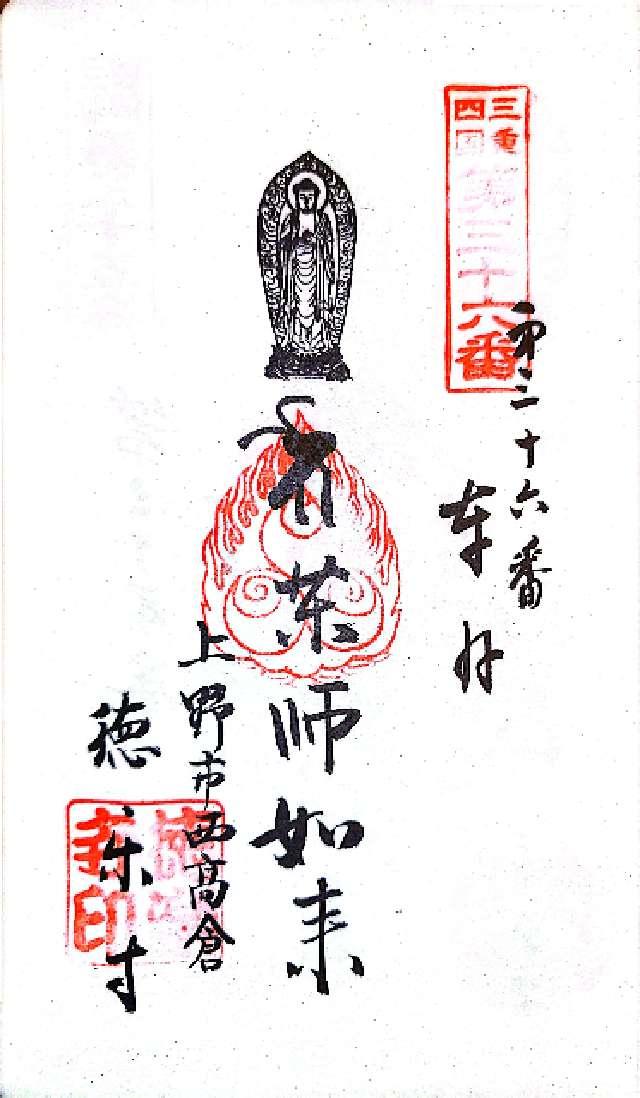 三重
四国
第三十六番
第三十六番
奉拝
薬師如来
上野市西高倉
徳楽寺
寺印